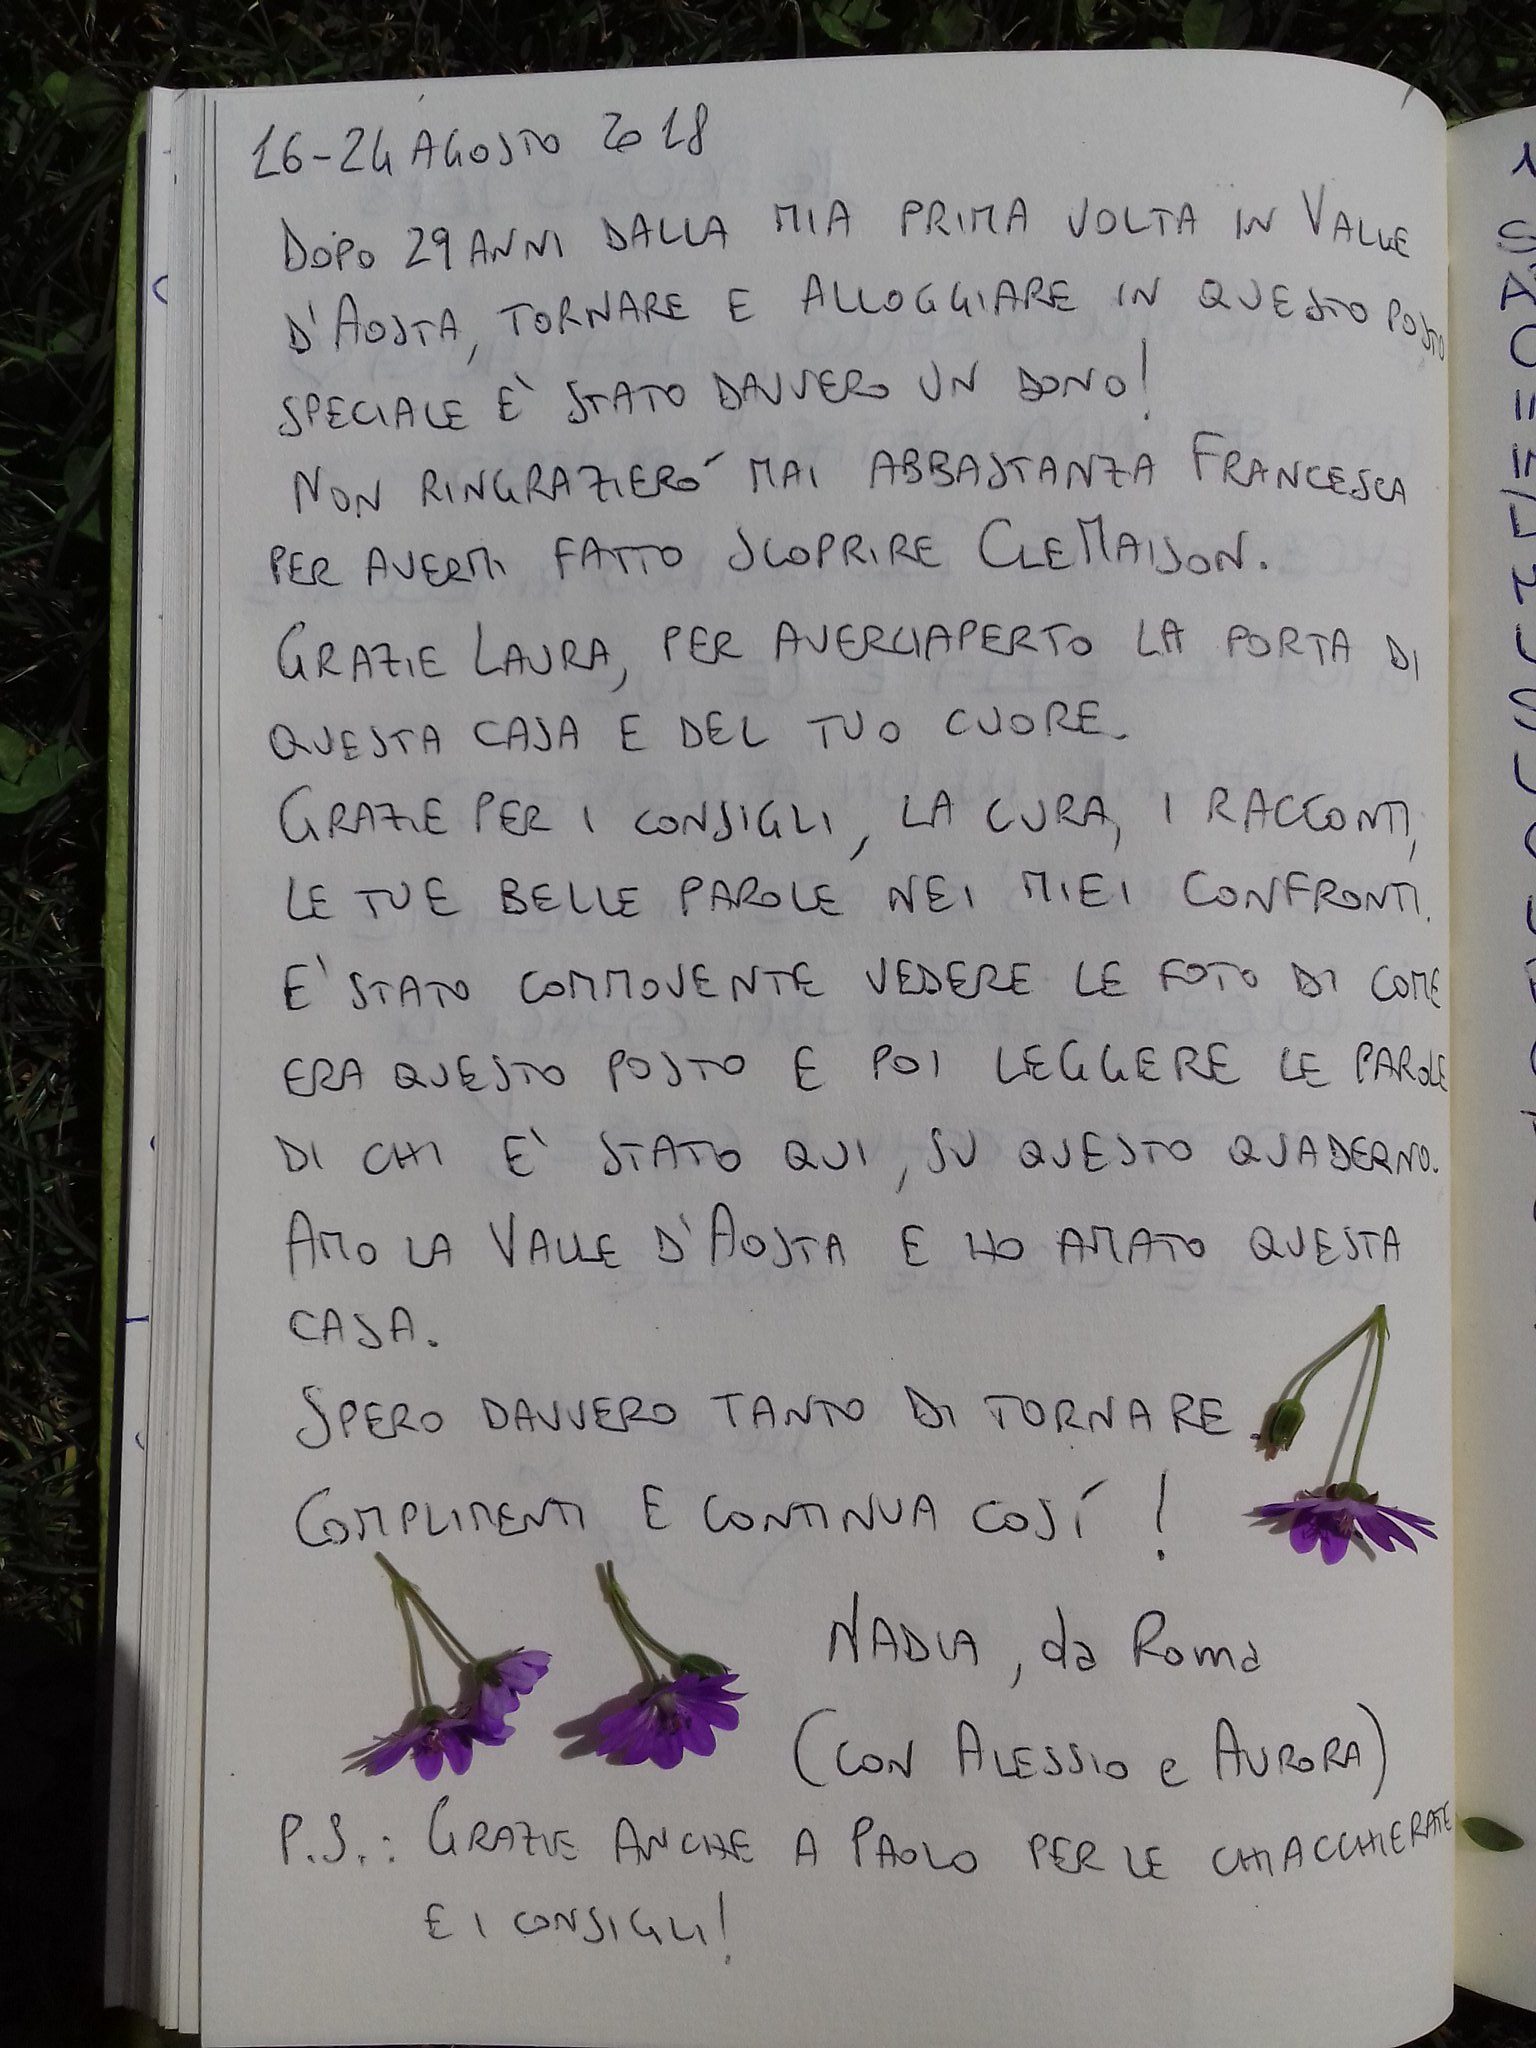 16-24 AGOSTO 2018
DOPO 29 ANNI DALLA MIA PRIMA VOLTA IN VALLE
D'AOSTA, TORNARE E ALLOGGIARE IN QUESTO POSTO
SPECIALE E' STATO DAVVERO UN DONO!
NON RINGRAZIERÓ MAI ABBASTANZA FRANCESCA
PER AVERMI FATTO SCOPRIRE CLEMAISON.
GRAZIE LAURA, PER AVERCI APERTO LA PORTA DI
QUESTA CASA E DEL TUO CUORE.
GRAZIE PER I CONSIGLI, LA CURA, I RACCONTI,
LE TUE BELLE PAROLE NEI MIEI CONFRONTI.
E' STATO COMMOVENTE VEDERE LE FOTO DI COME
ERA QUESTO POSTO E POI LEGGERE LE PAROLE
DI CHI E' STATO QUI, SU QUESTO QUADERNO.
AMO LA VALLE D'AOSTA E HO AMATO QUESTA
CASA.
SPERO DAVVERO TANTO DI TORNARE
COMPLIMENTI E CONTINUA COSÍ!
NADIA, da Roma
(CON ALESSIO e AURORA)
P.S.: GRAZIE ANCHE A PAOLO PER LE CHIACCHIERATE
E I CONSIGLI!